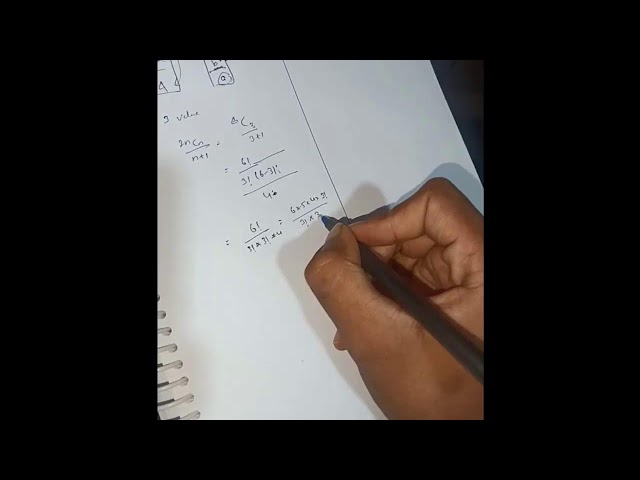 b
a
A
3 value
2nCn/n+1 = 6C3/3+1
= 6!/3!(6-3)!/4
= 6!/3!×3!×4 = 6×5×4×3!/3!×3